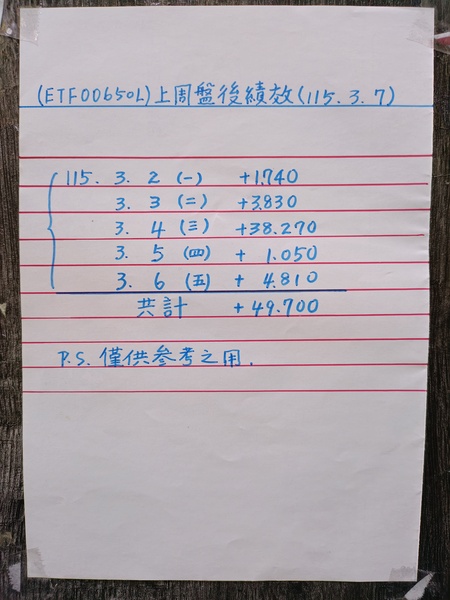 (ETF00650L)上周盤後績效(115.3.7)
115. 3. 2 (一) +1.740
3. 3 (二) +3.830
3. 4 (三) +38.270
3. 5 (四) + 1.050
3. 6 (五) + 4.810
共計 +49.700
P.S. 僅供參考之用.